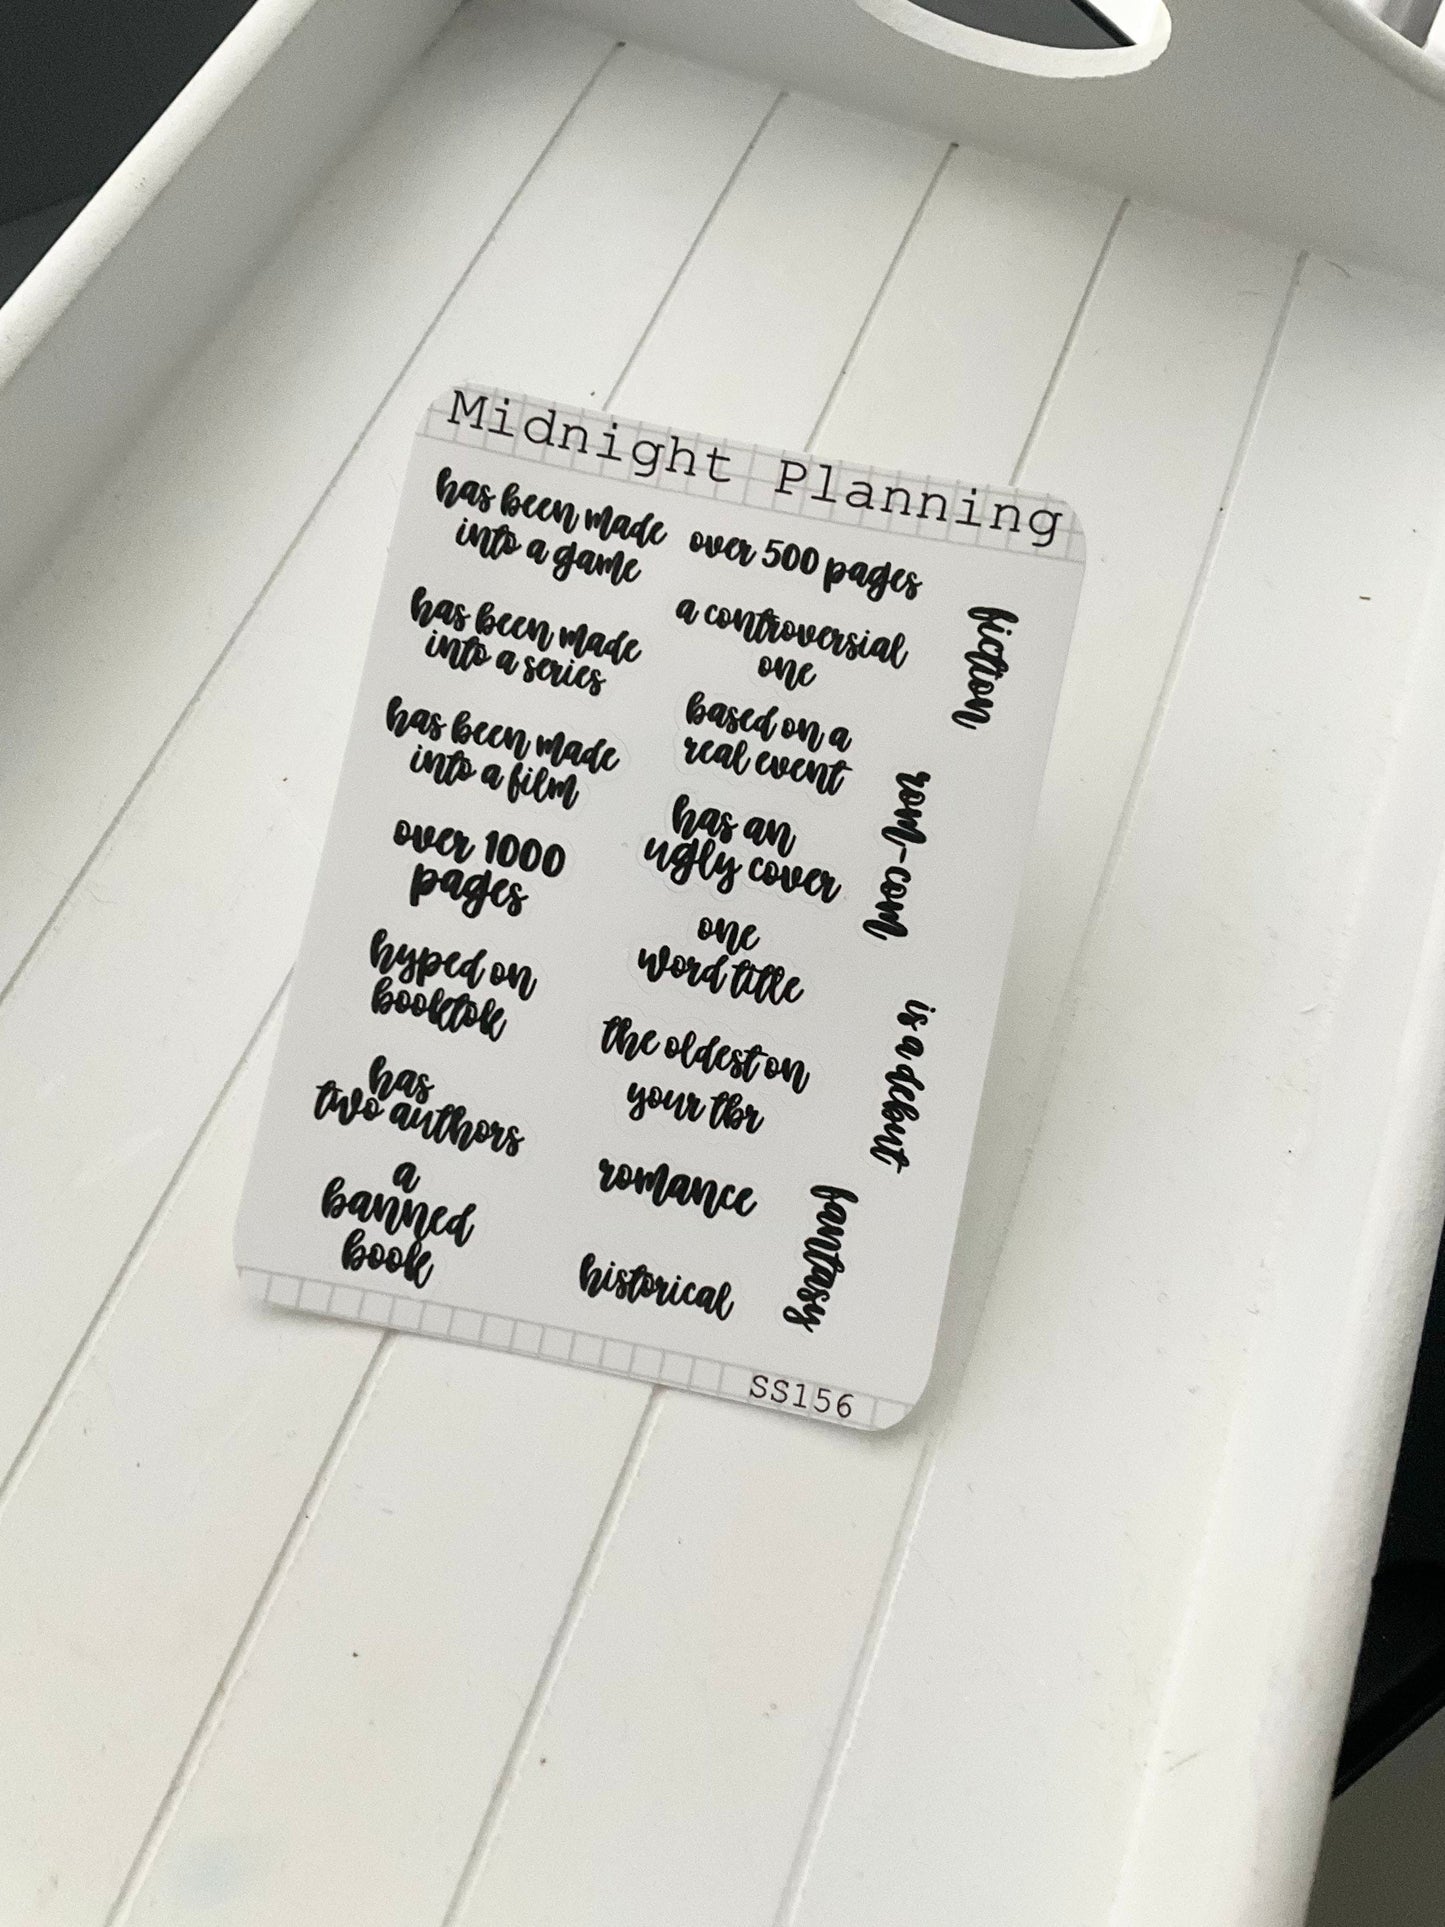 Midnight Planning
has been made
into a game
has been made
into a series
has been made
into a film
over 1000
pages
hyped on
booktok
has
two authors
a
banned
book
over 500 pages
a controversial
one
based on a
real event
has an
ugly cover
one
word title
the oldest on
your tbr
romance
historical
fiction
rom-com
is a debut
fantasy
SS156